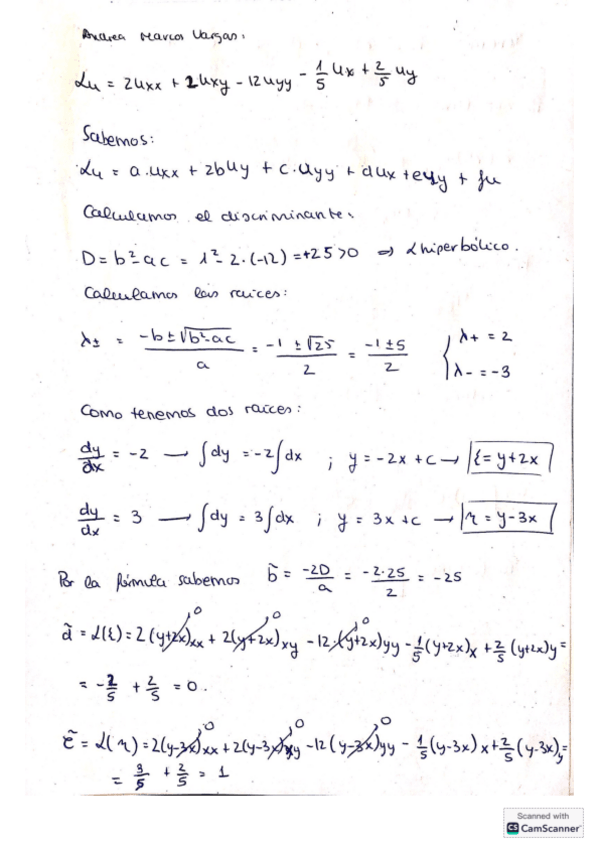 Andrea Marcos Vargas.
Lu = 2uxx + 2uxy - 12uyy - 1/5 ux + 2/5 uy
Sabemos:
Lu = a.uxx + 2buy + c.uyy + dux + euy + fu
Calculamos el discriminante.
D = b² - ac = 1² - 2.(-12) = +25 > 0 ⇒ L hiperbólico.
Calculamos las raíces:
λ± = (-b ± √(b²-ac))/a = (-1 ± √25)/2 = (-1 ± 5)/2 { λ+ = 2
λ- = -3
Como tenemos dos raíces:
dy/dx = -2 → ∫dy = -2∫dx ; y = -2x + c → ξ = y+2x
dy/dx = 3 → ∫dy = 3∫dx ; y = 3x + c → η = y-3x
Por la fórmula sabemos b̃ = -2D/a = -2·25/2 = -25
d̃ = L(ξ) = 2(y+2x)xx + 2(y+2x)xy - 12·(y+2x)yy - 1/5(y+2x)x + 2/5(y+2x)y =
= -2/5 + 2/5 = 0.
ẽ = L(η) = 2(y-3x)xx + 2(y-3x)xy - 12(y-3x)yy - 1/5(y-3x)x + 2/5(y-3x)y =
= 3/5 + 2/5 = 1
Scanned with
CS CamScanner